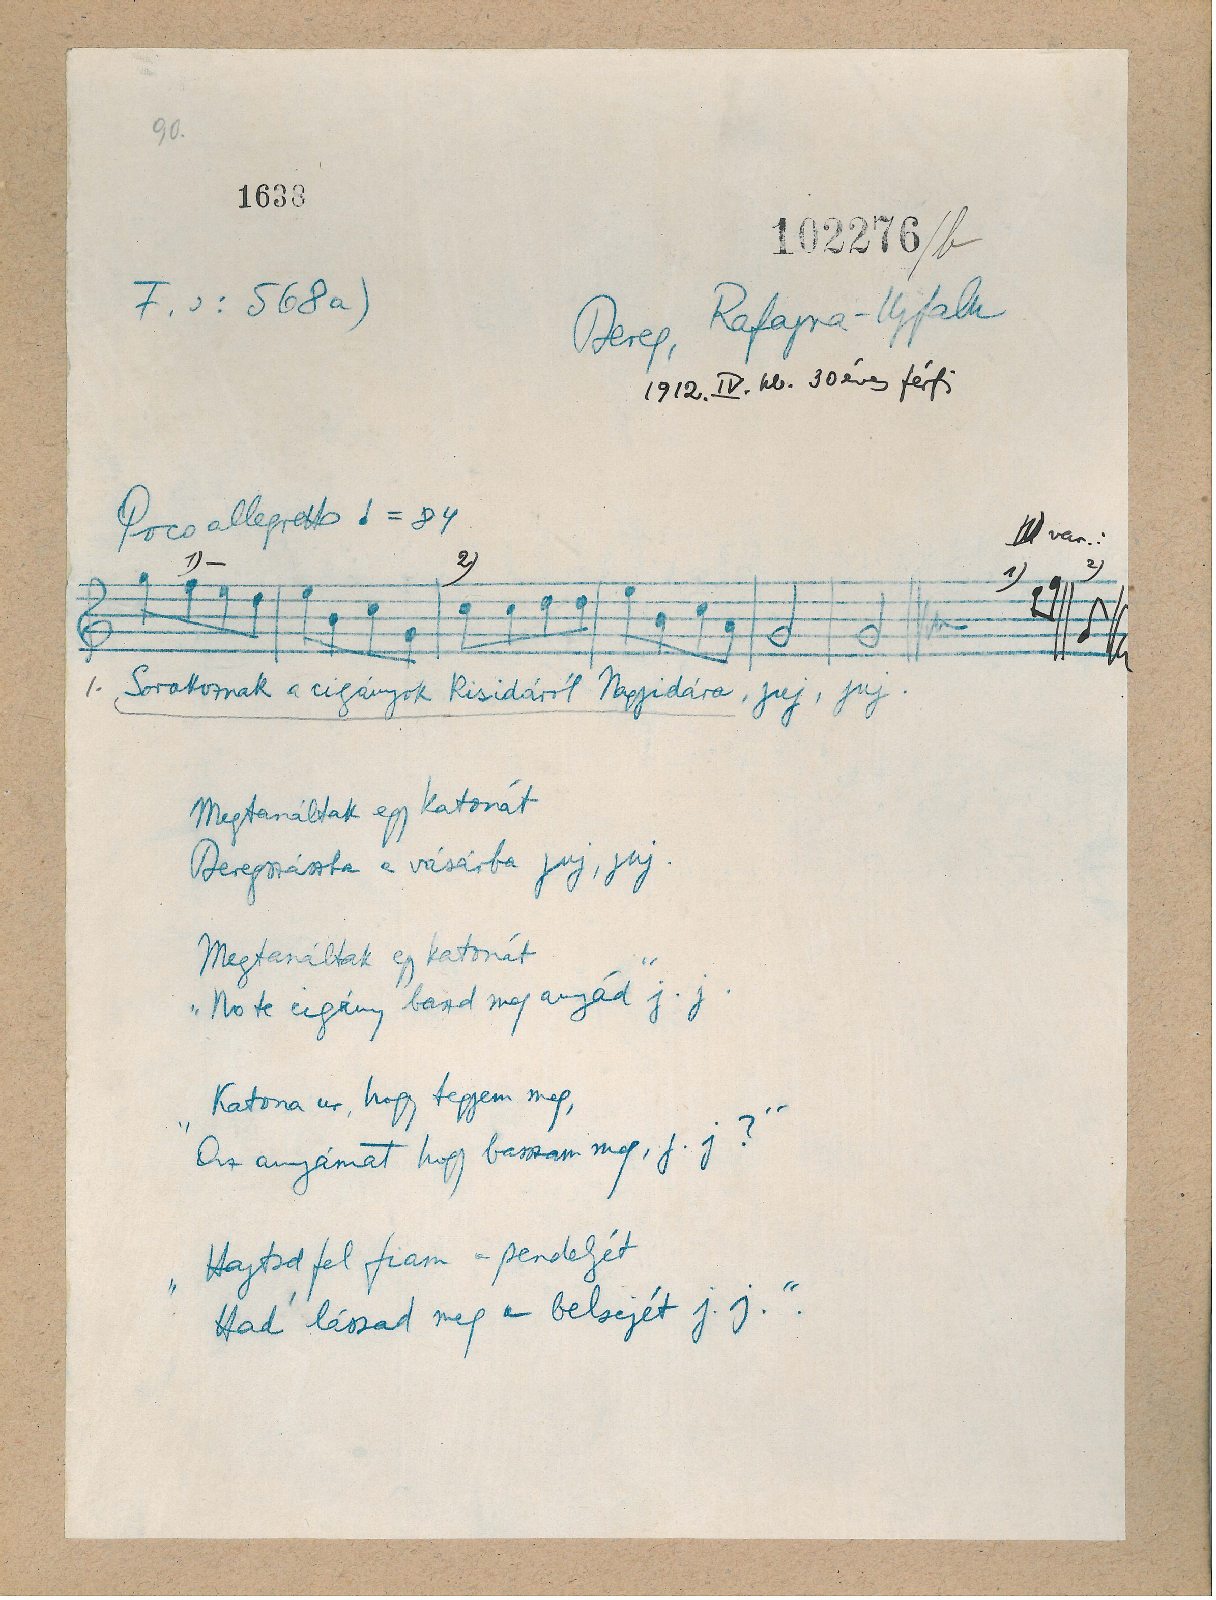 90.
1638
102276/b
F. s: 568a)
Bereg, Rafajna-Ujfalu
1912. IV. hó. 30 éves férfi
Poco allegretto ♩ = 84
var.:
1) 2) 1) 2)
1. Sorakoznak a cigányok Kisidáról Nagyidára, juj, juj.
Megtanáltak egy katonát
Beregszászba a vásárba juj, juj.
Megtanáltak egy katonát
"No te cigány baszd meg anyád" j. j.
"Katona ur, hogy tegyem meg,
Az anyámat hogy basszam meg, j. j?"
"Hajtsd fel fiam a pendeljét
Had' lássad meg a belsejét j. j.".